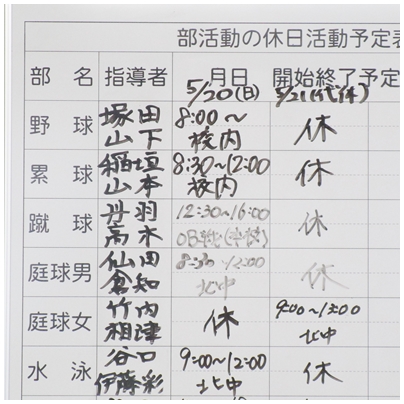 部活動の休日活動予定表
部名 指導者 月日 開始終了予定
5/20(日) 5/21(代休)
野球 塚田 山下 8:00〜 校内 休
累球 稲垣 山本 8:30〜12:00 校内 休
蹴球 丹羽 高木 12:30〜16:00 OB戦(本校) 休
庭球男 仙田 倉知 8:30 12:00 北中 休
庭球女 竹内 相津 休 9:00〜13:00 北中
水泳 谷口 伊藤彩 9:00〜12:00 北中 休